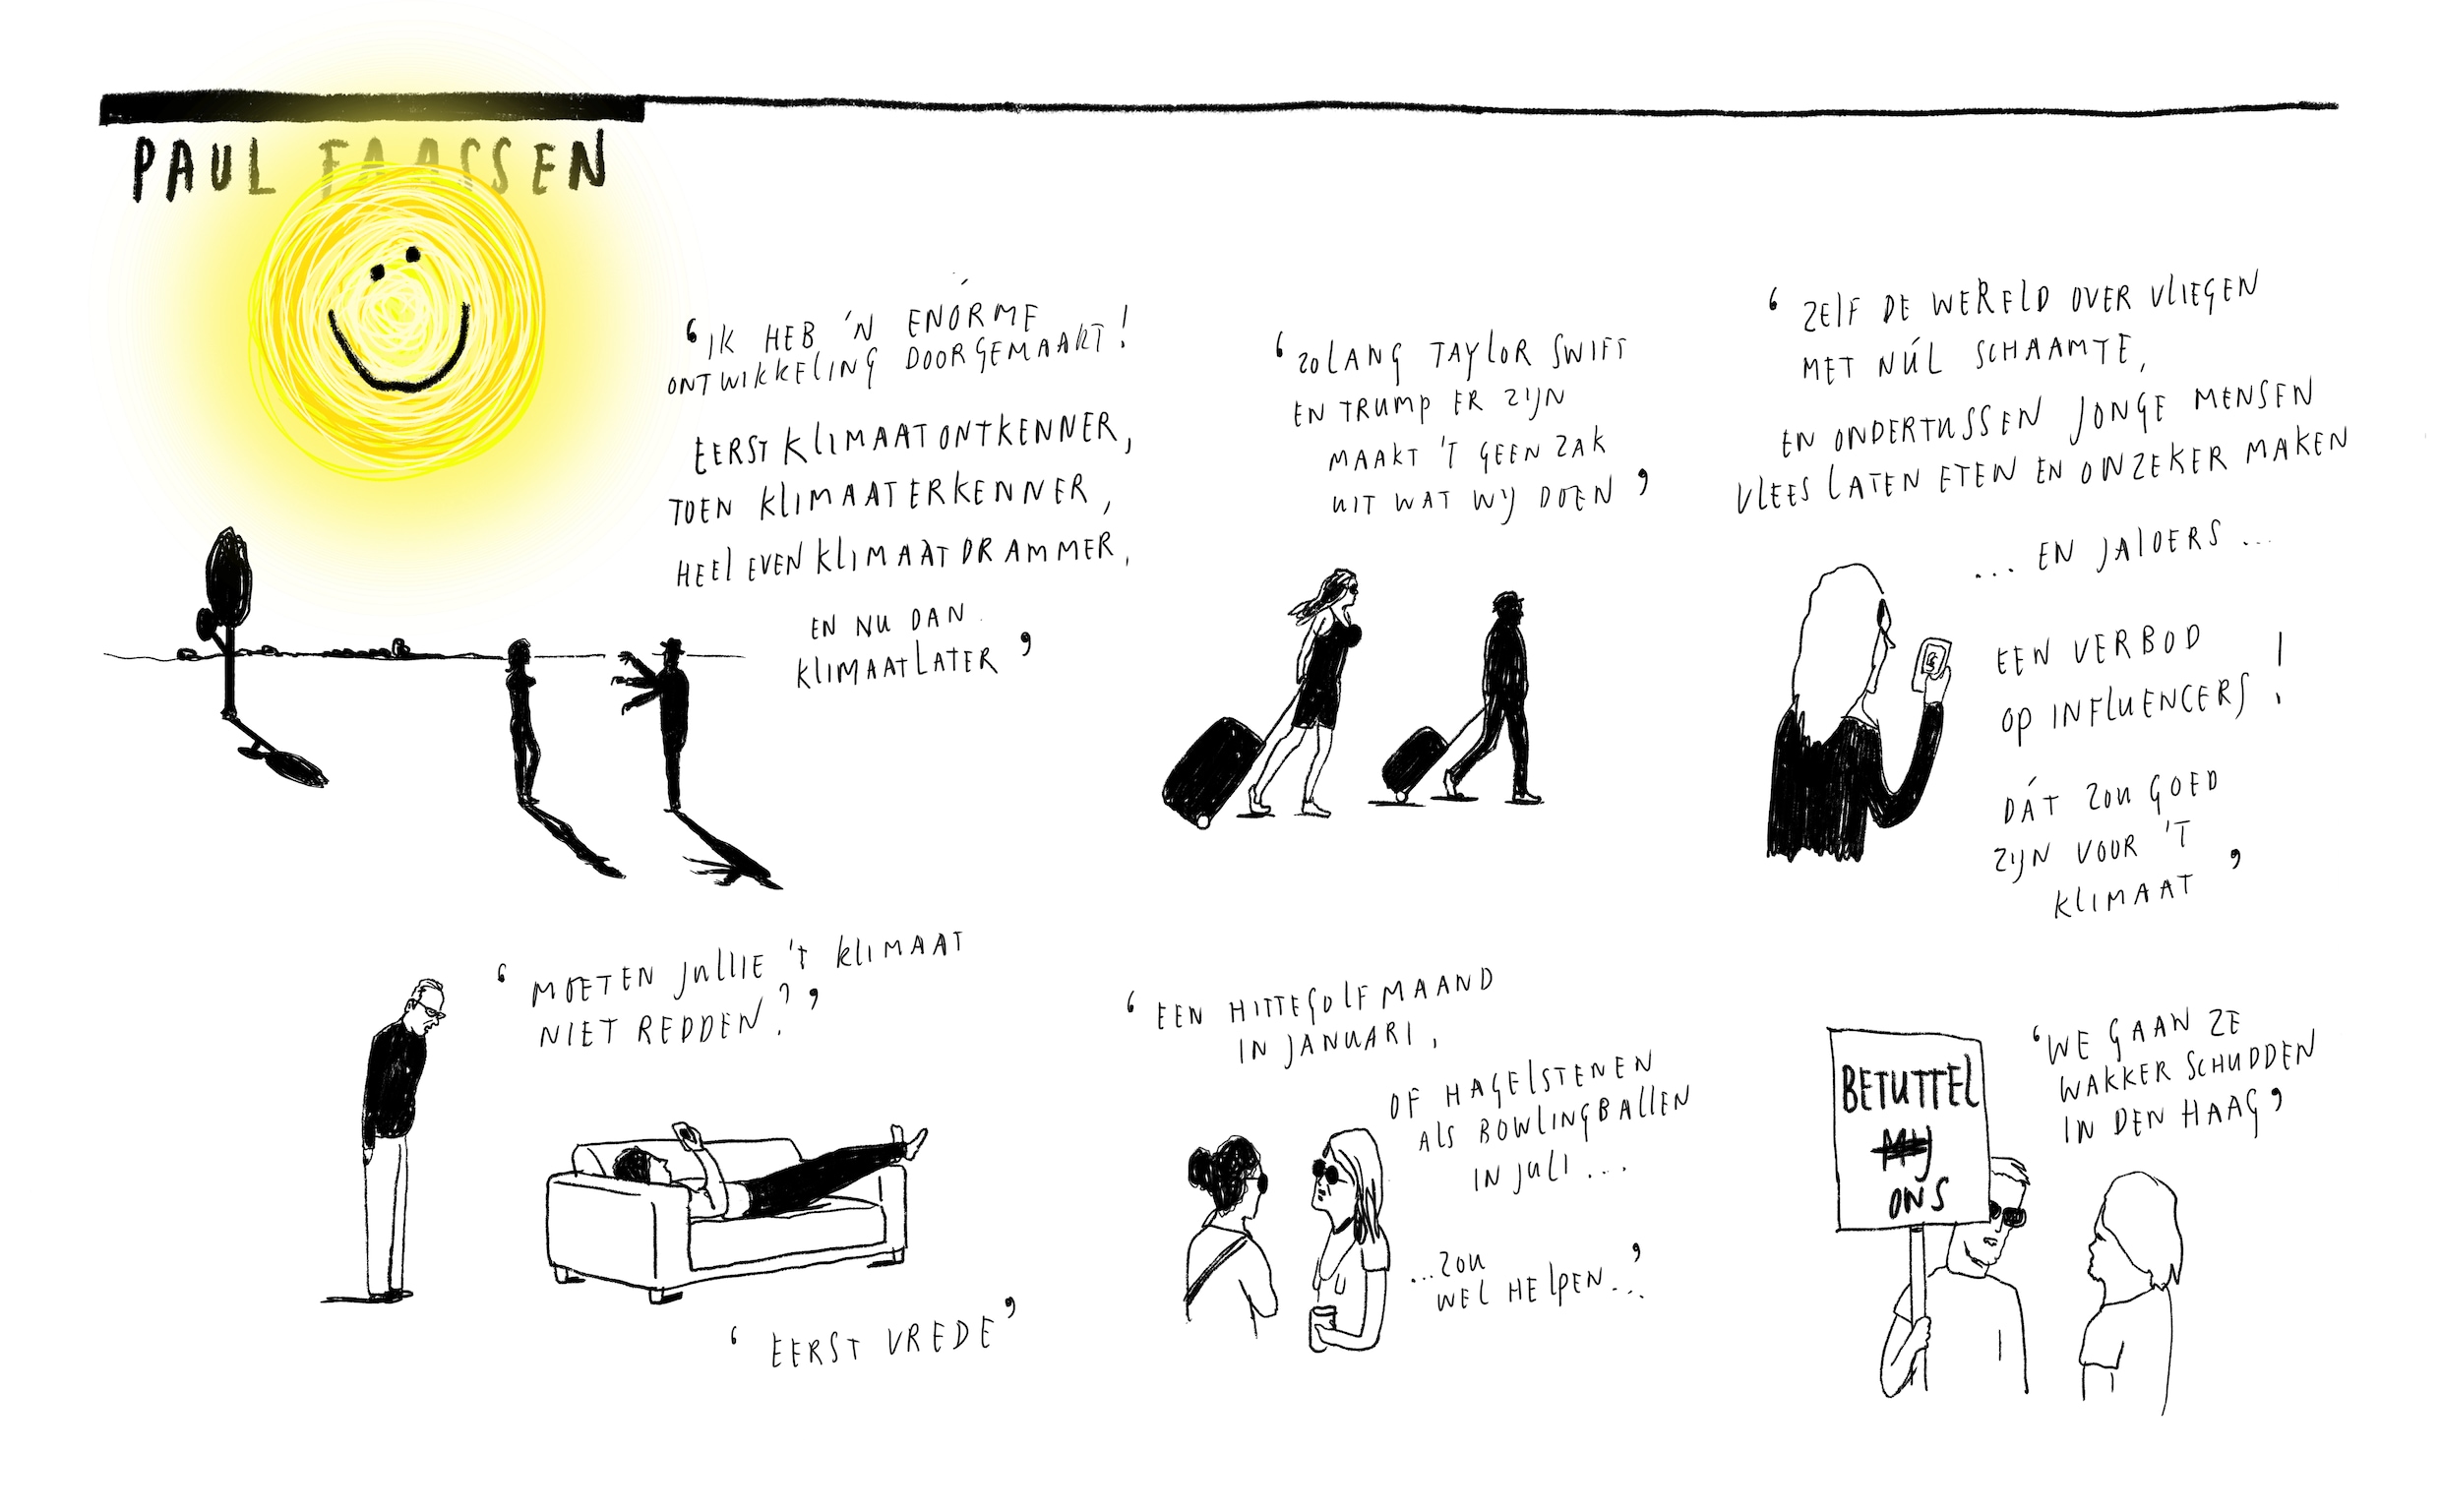 PAUL FAASSEN
‘IK HEB ’N ENÓRME
ONTWIKKELING DOORGEMAAKT!
EERST KLIMAATONTKENNER,
TOEN KLIMAATERKENNER,
HEEL EVEN KLIMAATDRAMMER,
EN NU DAN
KLIMAATLATER’
‘ZOLANG TAYLOR SWIFT
EN TRUMP ER ZIJN
MAAKT ’T GEEN ZAK
UIT WAT WIJ DOEN’
‘ZELF DE WERELD OVER VLIEGEN
MET NÚL SCHAAMTE,
EN ONDERTUSSEN JONGE MENSEN
VLEES LATEN ETEN EN ONZEKER MAKEN
... EN JALOERS ...
EEN VERBOD
OP INFLUENCERS!
DÁT ZOU GOED
ZIJN VOOR ’T
KLIMAAT’
‘MOETEN JULLIE ’T KLIMAAT
NIET REDDEN?’
‘EERST VREDE’
‘EEN HITTEGOLFMAAND
IN JANUARI,
OF HAGELSTENEN
ALS BOWLINGBALLEN
IN JULI ...
...ZOU
WEL HELPEN...’
BETUTTEL
MIJ
ONS
‘WE GAAN ZE
WAKKER SCHUDDEN
IN DEN HAAG’